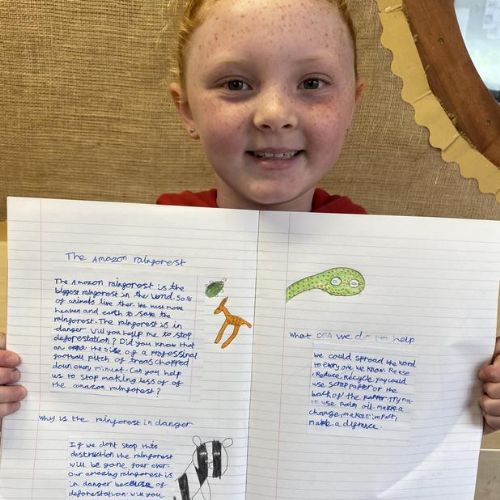 The Amazon rainforest
The Amazon rainforest is the
biggest rainforest in the world. So
of animals live ther. We must move
heaven and earth to save the
rainforest. The rainforest is in
danger Will you help me to stop
deforestation? Did you know that
an the size of a
football pitch of trees chopped
down every minuet. Can you help
us to stop making less of of
the amazon rainforest?
Why is the rainforest in danger
If we dont stop this
destruction the rainforest
will be gone four ever.
Our amazing rainforest is
in danger because of
deforestation. will you
What can we do to help
We could spread the word
to every one we know. Re use
, Reduce, Recycle, you could
use scrap or the
back of the Try not
to use palm oil. make a
change, make impact,
make a